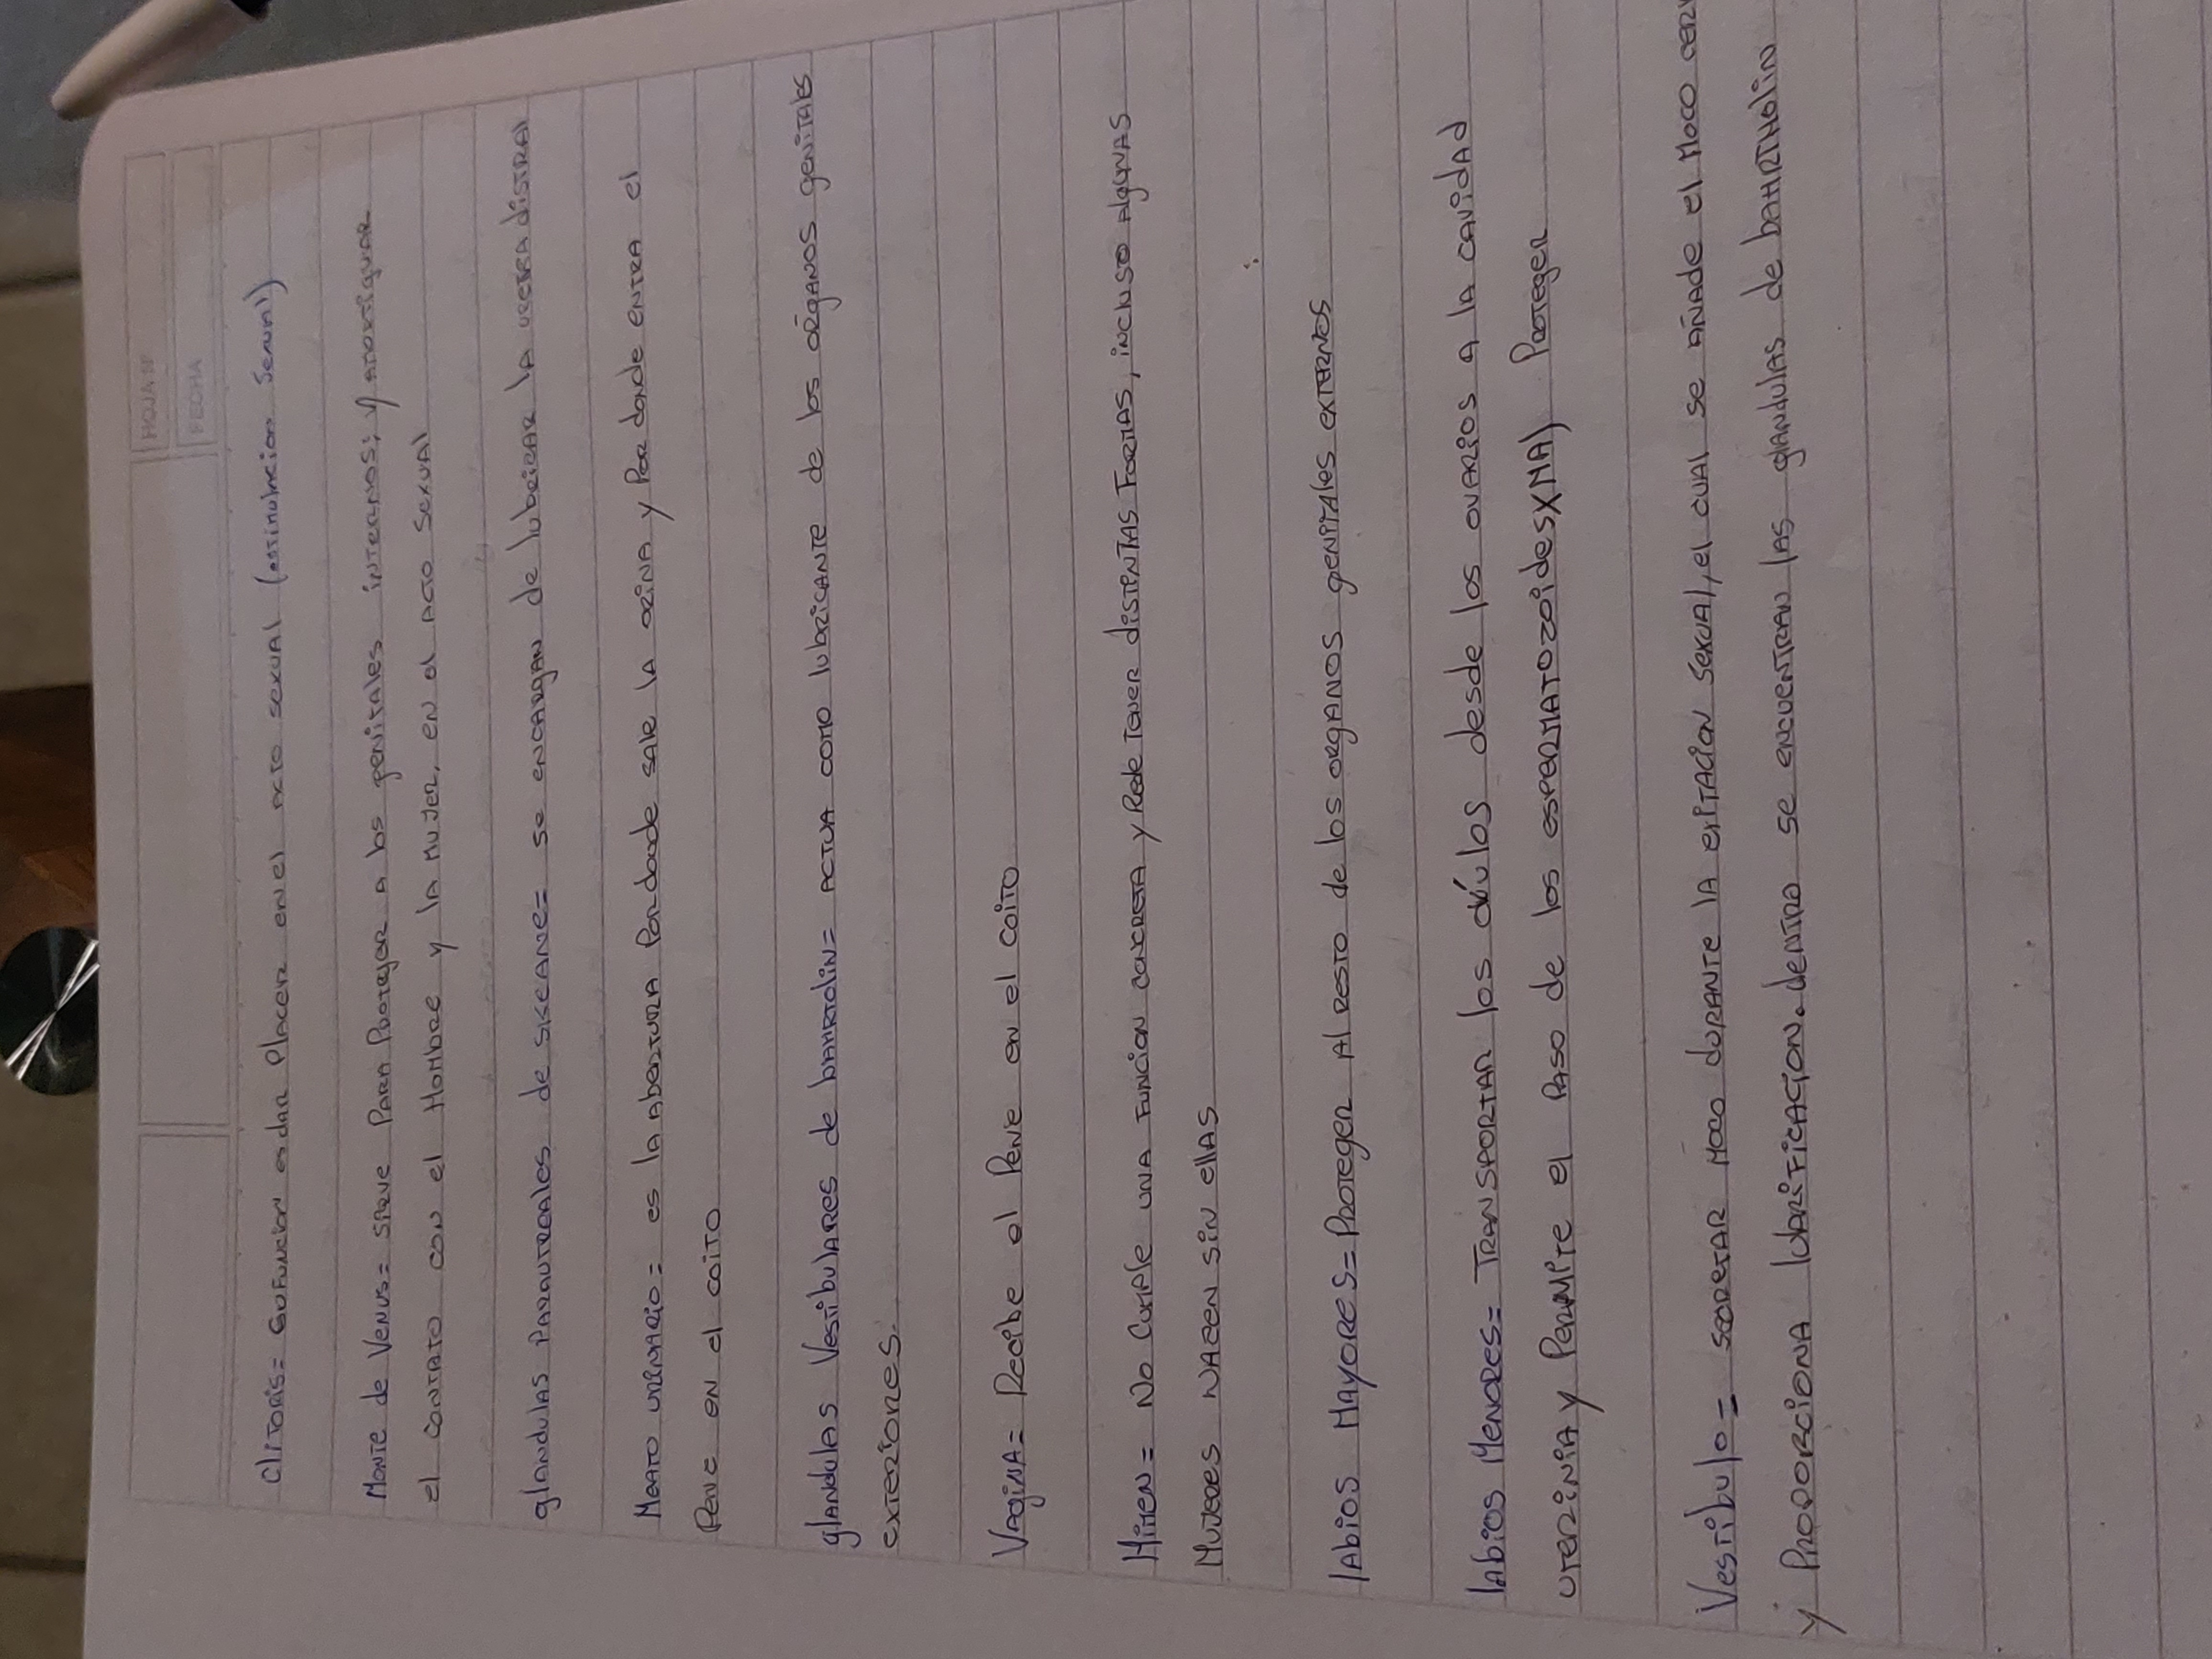 HOJA Nº
FECHA
Clitoris= su funcion es dar Placer en el acto sexual (estimulacion sexual)
Monte de Venus= sirve Para Proteger a los genitales internos; y amortiguar
el contato con el Hombre y la Mujer, en el acto sexual
glandulas Parautreales de sKeane= se encargan de lubricar la uretra distral
Meato urinario= es la abertura Por donde sale la orina y Por donde entra el
Pene en el coito
glandulas Vestibulares de bahrtolin= actua como lubricante de los órganos genitals
exteriores.
Vagina= Recibe el Pene en el coito
Himen= No cumple una funcion concreta y Puede tener distintas Formas, incluso algunas
Mujeres nacen sin ellas
labios Mayores= Proteger al resto de los organos genitales externos
labios Menores= Transportar los óvulos desde los ovarios a la cavidad
uterinia y Permite el Paso de los espermatozoides XMA) Proteger
Vestibulo= secretar moco durante la exitacion sexual, el cual se añade el moco cerv
y Proporciona lubrificacion. dentro se encuentran las glandulas de bahrtholin